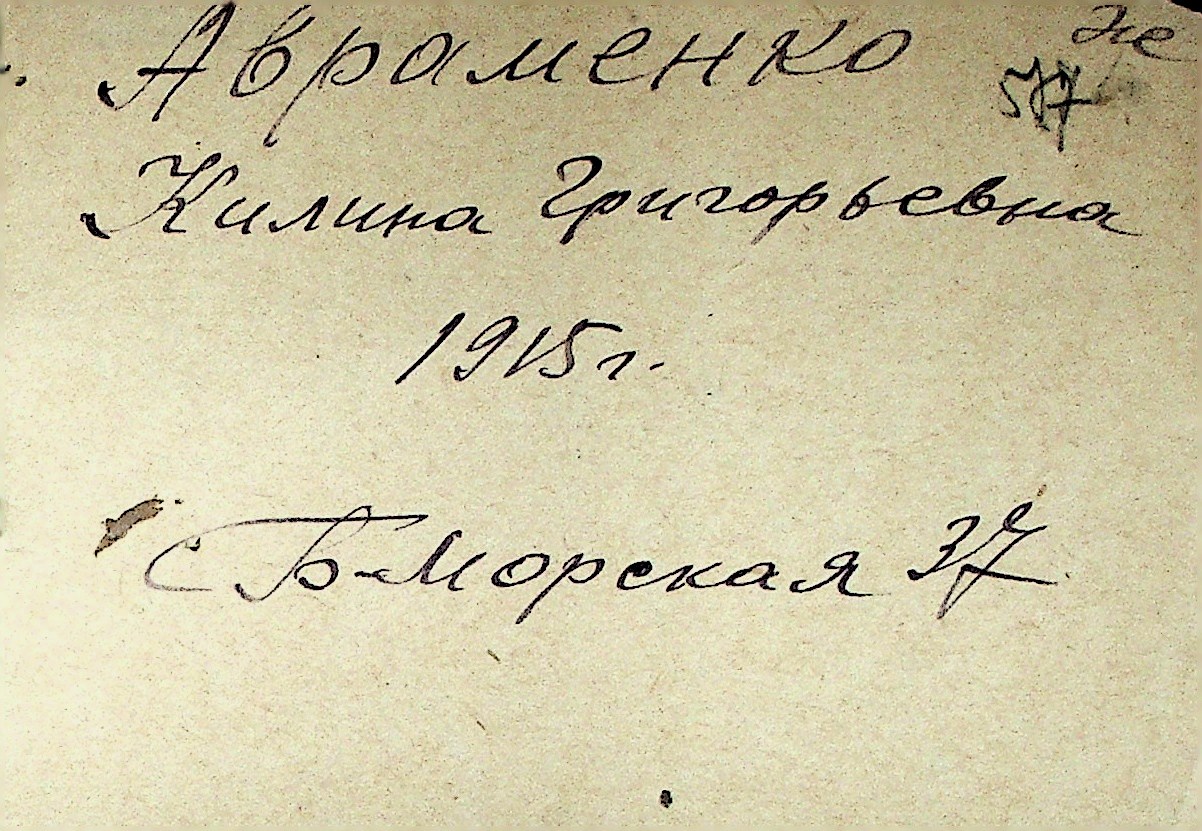 Авраменко же
57
Килина Григорьевна
1915г.
Б-Морская 37